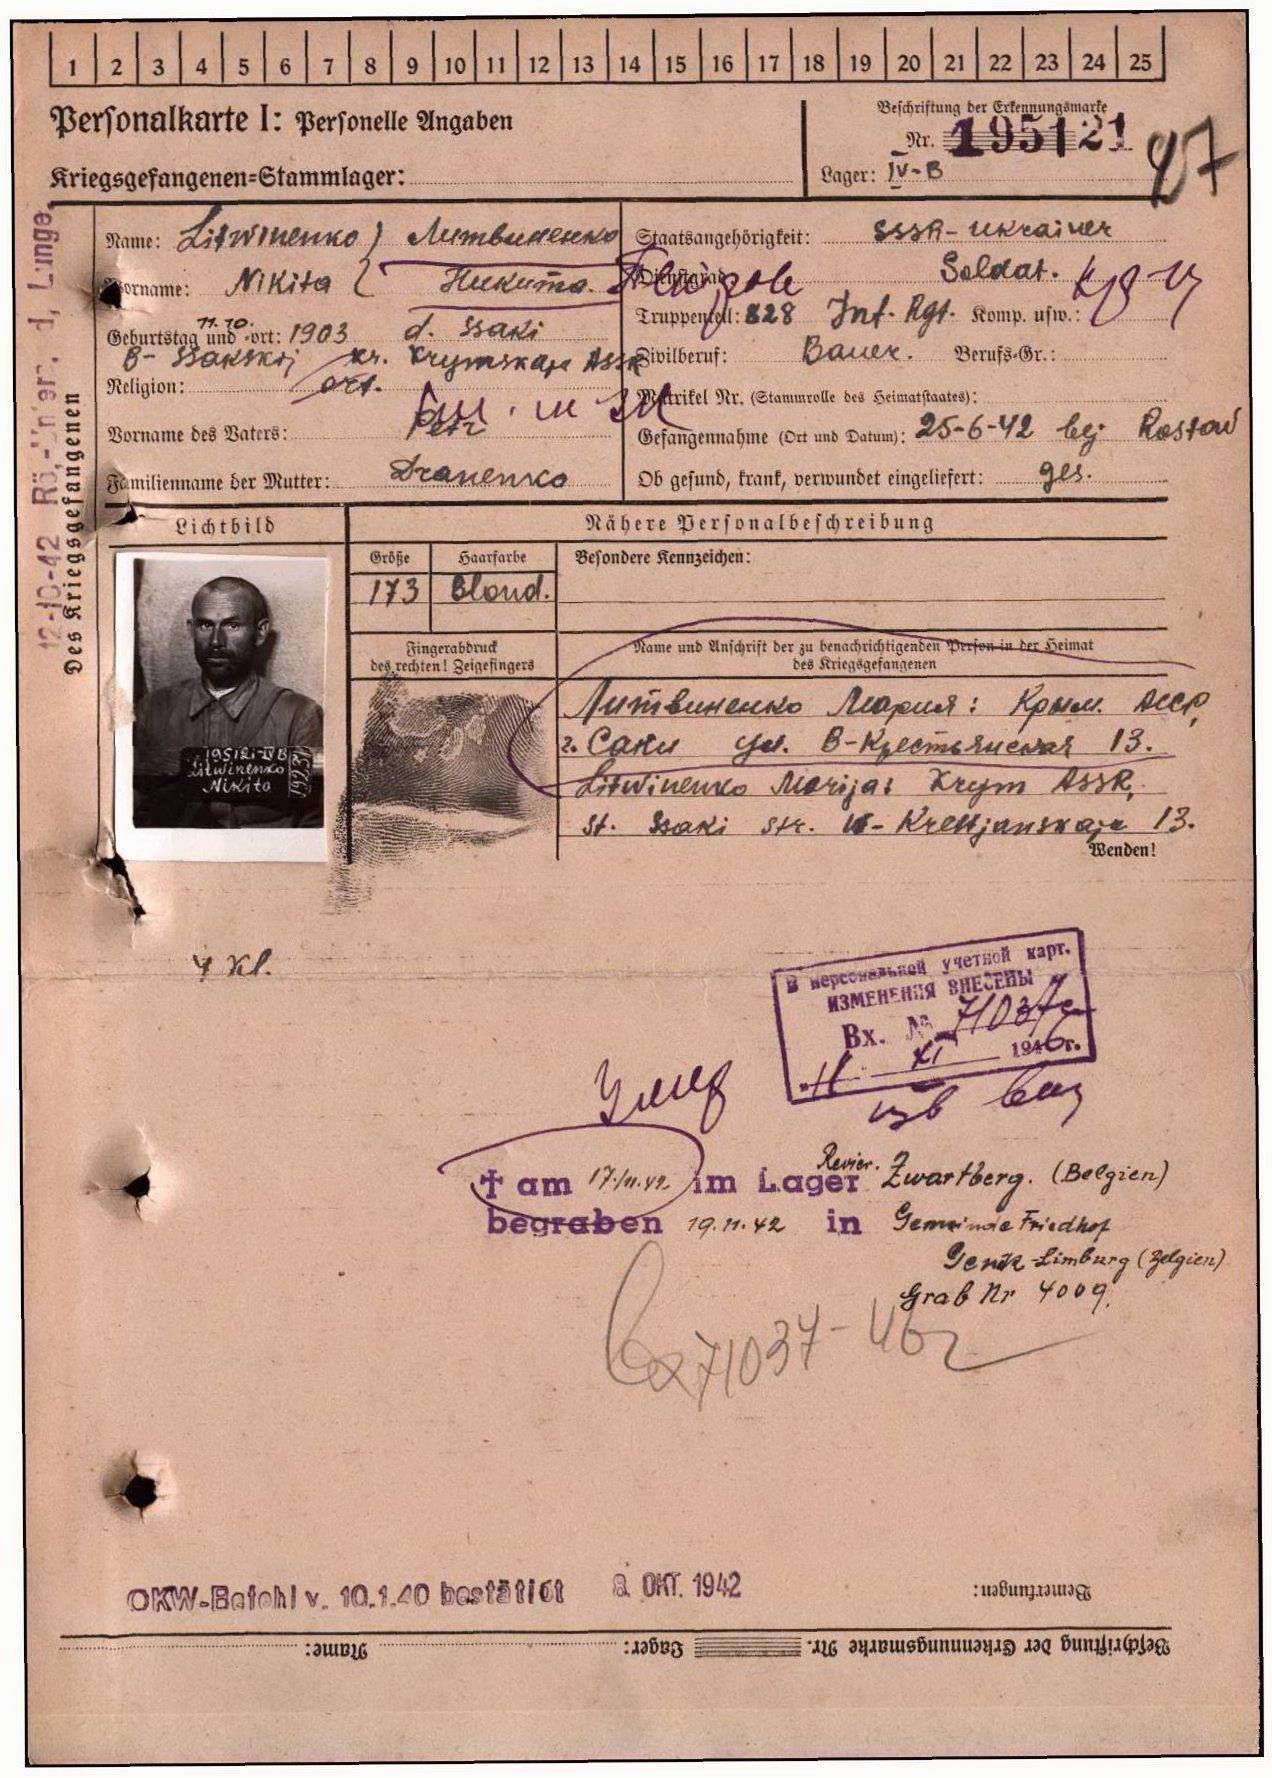 1 2 3 4 5 6 7 8 9 10 11 12 13 14 15 16 17 18 19 20 21 22 23 24 25
Personalkarte I: Personelle Angaben
Kriegsgefangenen=Stammlager:
Beschriftung der Erkennungsmarke
Nr. 195121
Lager: IV-B
Name: Litwinenko Литвиненко
Vorname: Nikita Никита
Geburtstag und -ort: 11.10. 1903 d. Ssaki
B- Ssakskij kr. Krymskaja ASSR
Religion: ort.
Vorname des Vaters: Petr
Familienname der Mutter: Dranenko
Staatsangehörigkeit: SSSR-Ukrainer
Dienstgrad: Soldat.
Truppenteil: 828 Inf. Rgt. Komp. usw.:
Zivilberuf: Bauer. Berufs-Gr.:
Matrikel Nr. (Stammrolle des Heimatstaates):
Gefangennahme (Ort und Datum): 25-6-42 bej Rostow
Ob gesund, krank, verwundet eingeliefert: ges.
12-10-42 Rö.- d, Lunge.
Des Kriegsgefangenen
Lichtbild
195121-IV B
Litwinenko
Nikita
Nähere Personalbeschreibung
Größe Haarfarbe Besondere Kennzeichen:
173 Blond.
Fingerabdruck
des rechten! Zeigefingers
Name und Anschrift der zu benachrichtigenden Person in der Heimat
des Kriegsgefangenen
Литвиненко Мария: Крым. АССР,
г. Саки ул. В-Крестьянская 13.
Litwinenko Marija: Krym ASSR,
st. Ssaki str. W-Krestjanskaja 13.
Wenden!
4 Kl.
В персональной учетной карт.
ИЗМЕНЕНИЯ ВНЕСЕНЫ
Вх. № 71037с
"11" XI 1946г.
Умер
✝ am 17.11.42. im Lager Revier. Zwartberg. (Belgien)
begraben 19.11.42 in Gemeinde Friedhof
Genk-Limburg (Belgien)
Grab Nr 4009.
Вх 71037-46г
OKW-Befehl v. 10.1.40 bestätigt 8. OKT. 1942
Bemerkungen:
Beschriftung der Erkennungsmarke Nr. Lager: Name: